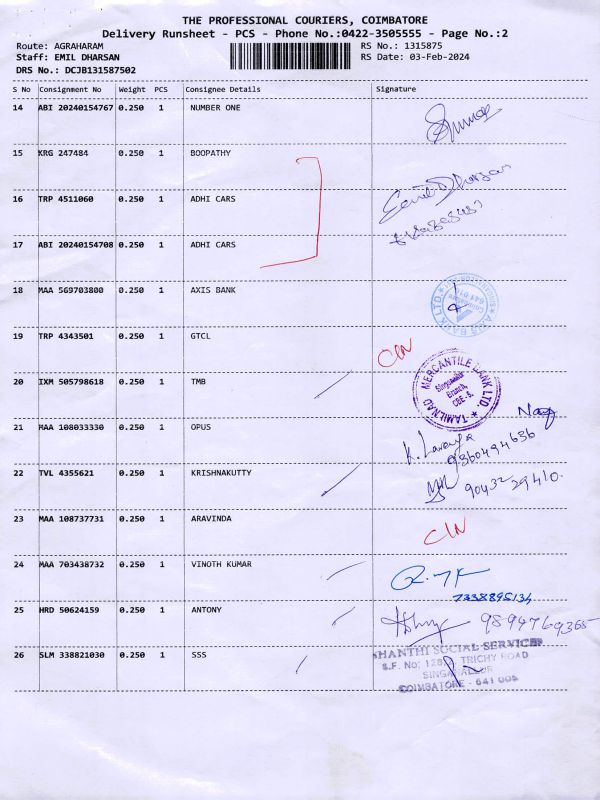 THE PROFESSIONAL COURIERS, COIMBATORE
Delivery Runsheet - PCS - Phone No.:0422-3505555 - Page No.:2
Route: AGRAHARAM RS No.: 1315875
Staff: EMIL DHARSAN RS Date: 03-Feb-2024
DRS No.: DCJB131587502
S No Consignment No Weight PCS Consignee Details Signature
14 ABI 20240154767 0.250 1 NUMBER ONE
15 KRG 247484 0.250 1 BOOPATHY
16 TRP 4511060 0.250 1 ADHI CARS
Emil Dharsan
17 ABI 20240154708 0.250 1 ADHI CARS
18 MAA 569703800 0.250 1 AXIS BANK
AXIS BANK LTD
19 TRP 4343501 0.250 1 GTCL
20 IXM 505798618 0.250 1 TMB
TAMILNAD MERCANTILE BANK LTD.
Singanallur
Branch,
CBE - 5.
21 MAA 108033330 0.250 1 OPUS
K. Lavanya
9360494636
22 TVL 4355621 0.250 1 KRISHNAKUTTY
9043229410.
23 MAA 108737731 0.250 1 ARAVINDA
24 MAA 703438732 0.250 1 VINOTH KUMAR
7338895134
25 HRD 50624159 0.250 1 ANTONY
9894769365
26 SLM 338821030 0.250 1 SSS
SHANTHI SOCIAL SERVICES
S.F. No: TRICHY ROAD
SINGANALLUR
COIMBATORE - 641 005